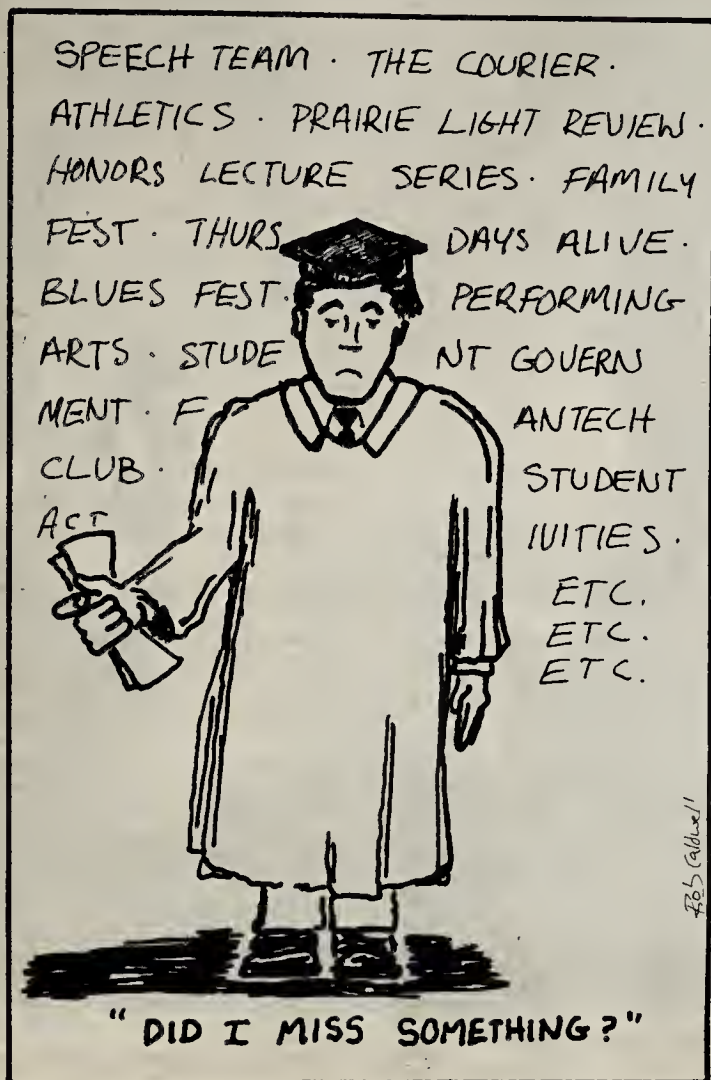 SPEECH TEAM · THE COURIER ·
ATHLETICS · PRAIRIE LIGHT REVIEW ·
HONORS LECTURE SERIES · FAMILY
FEST · THURS DAYS ALIVE ·
BLUES FEST · PERFORMING
ARTS · STUDE NT GOVERN
MENT · F ANTECH
CLUB · STUDENT
ACT IVITIES ·
ETC.
ETC.
ETC.
Bob Caldwell
"DID I MISS SOMETHING?"